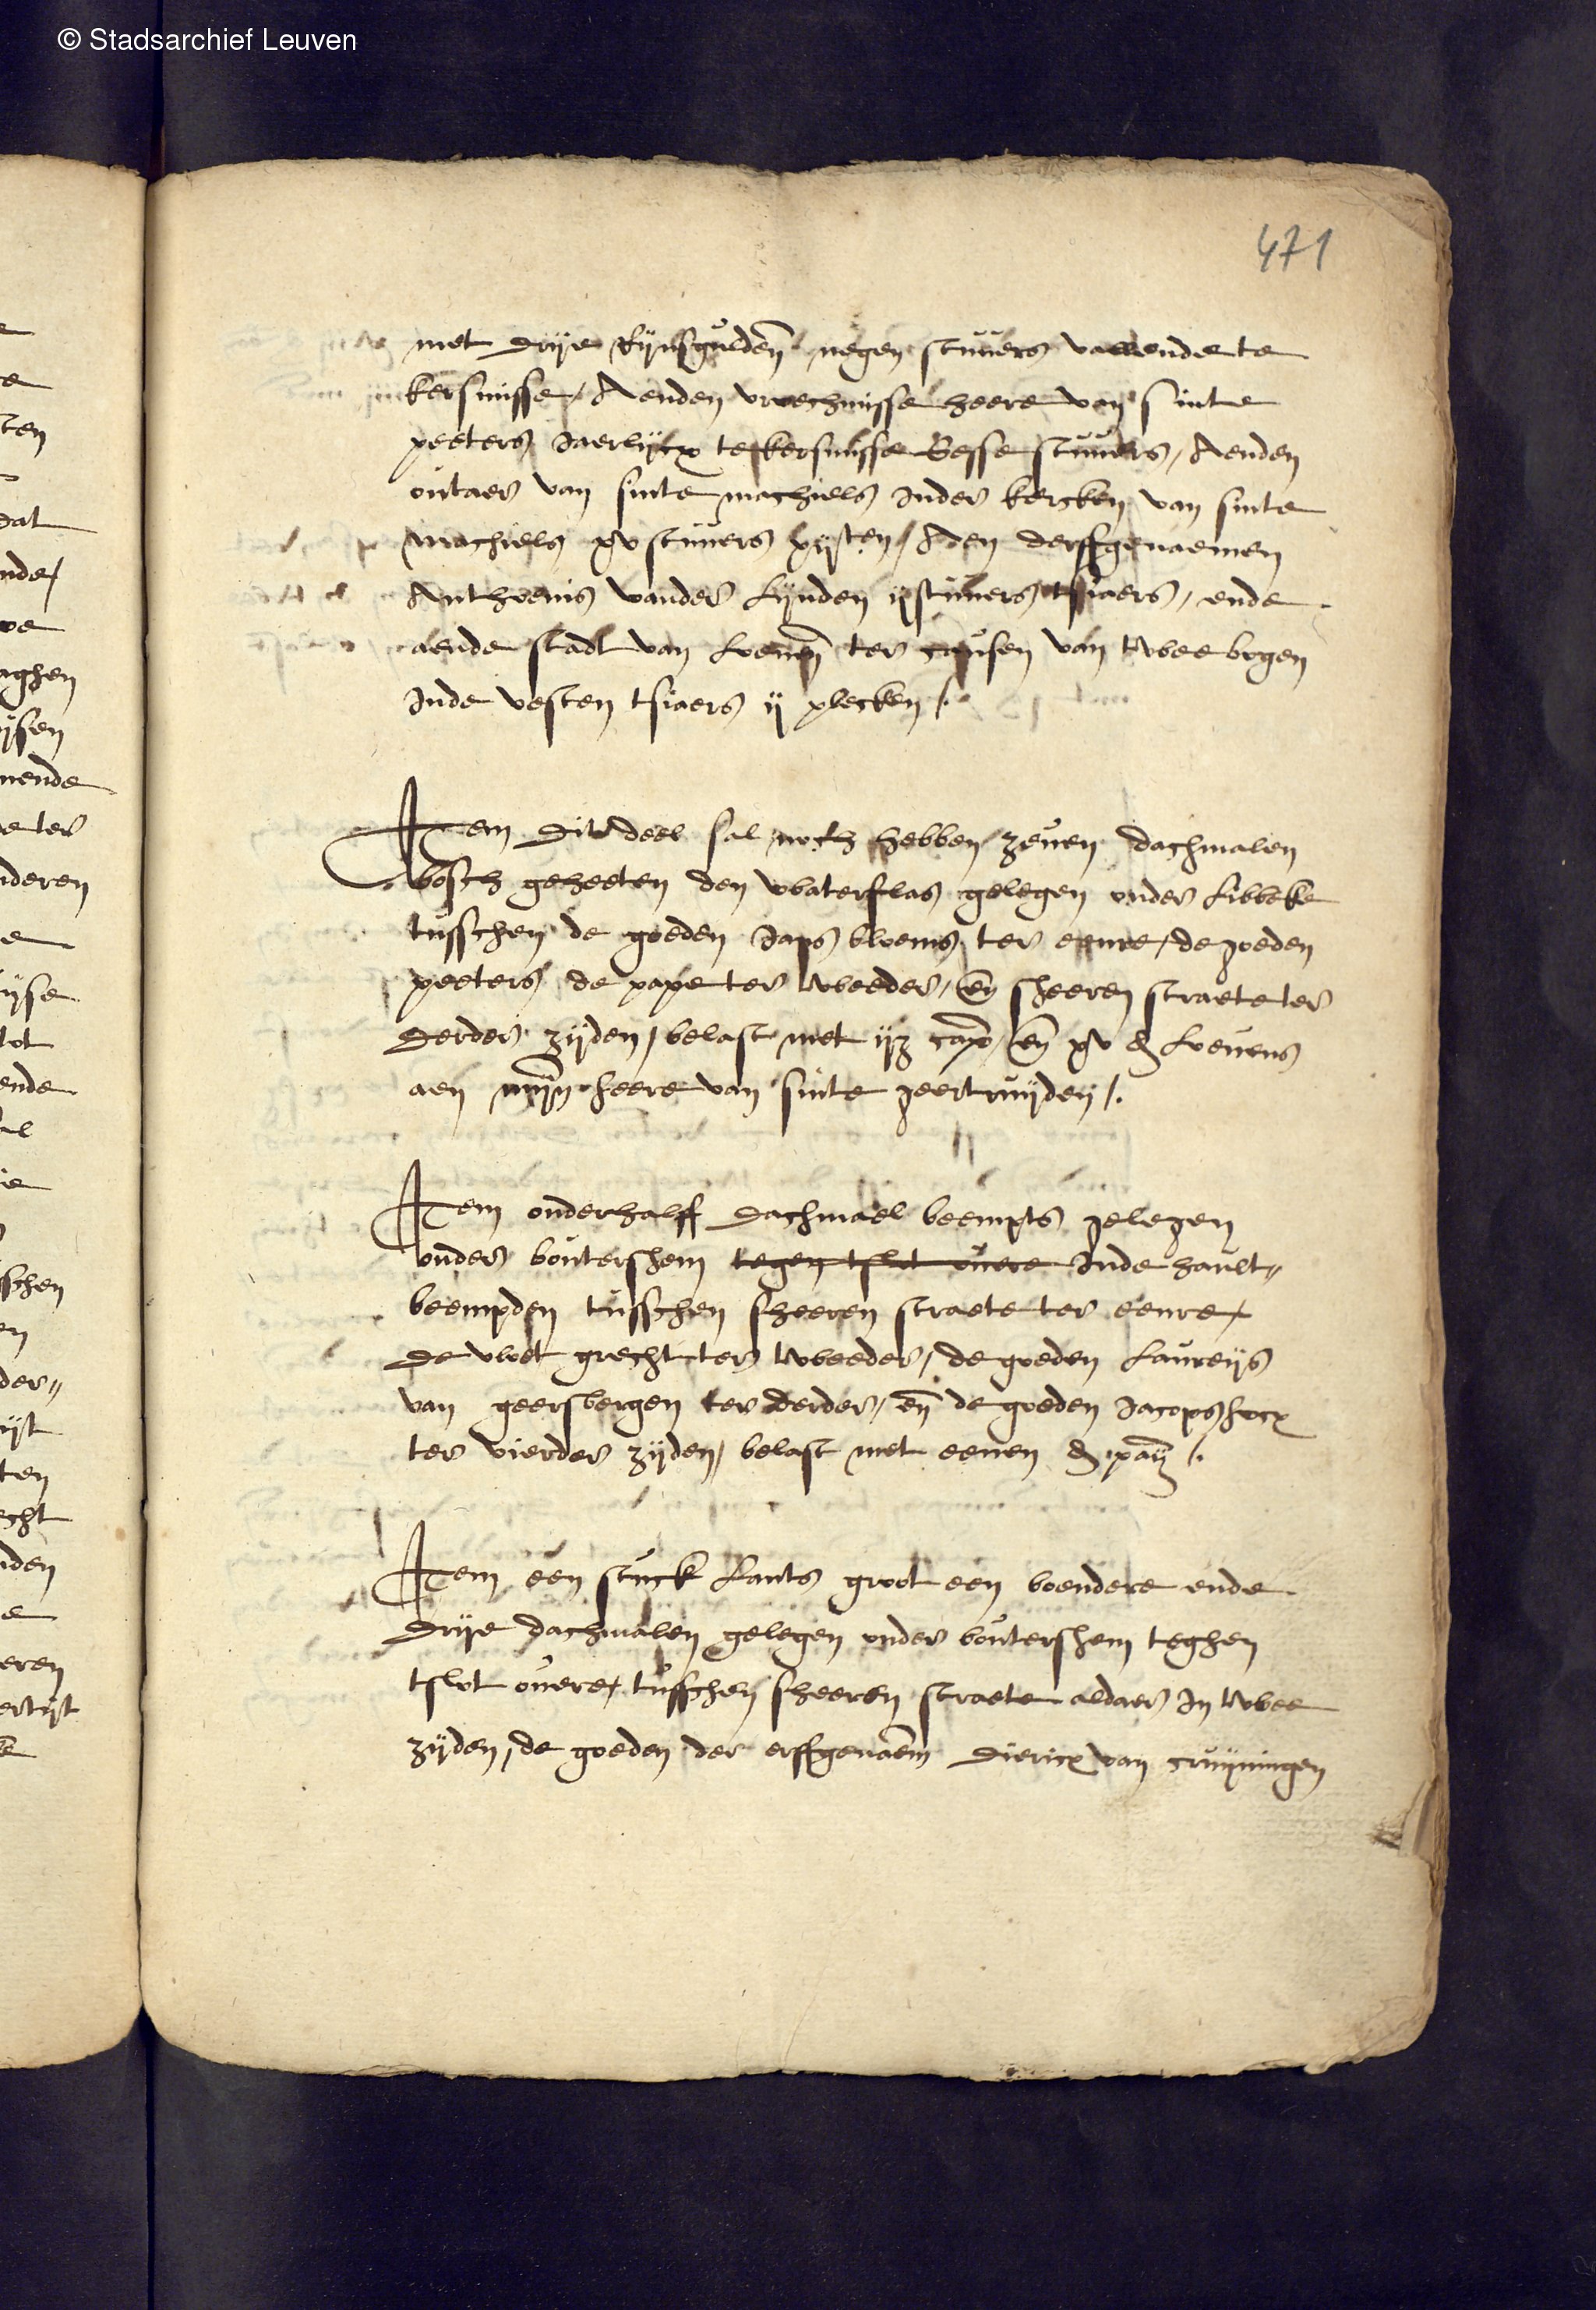 © Stadsarchief Leuven
471
met drije Rijnsgulden negen stuvers vallende te
kersmisse / Aenden vroechmisse heere van sinte
peeters Jaerlijcx te kersmisse Sesse stuvers / Aenden
outaer van sinte machiels Inder kercken van sinte
Machiels xv stuvers / Aen derffgenaemen
Anthoenis vander Lijnden ij stuvers tsiaers / ende
aende stadt van Loeven ter causen van twee bogen
Inde vesten tsiaers ij plecken /.
Item dit deel sal noch hebben zeven dachmalen
bosch geheeten den waterflas gelegen onder Libbeke
tusschen de goeden Jans bloems ter eenre / de goeden
peeters de pape ter tweeder / en sheeren straete ter
derder zijden / belast met cap en xv d Loevens
aen mijn heere van sinte geertruijden /.
Item onderhalff dachmael beempts gelegen
onder boutershem tegen tslot overe Inde hault„
beempden tusschen sheeren straete ter eenre /
de vloet grecht ter tweeder / de goeden Laureijs
van geersbergen ter derder / en de goeden Jacops
ter vierder zijden / belast met eenen d paij /.
Item een stuck Lants groot een boendere ende
drije dachmalen gelegen onder boutershem teghen
tslot overe / tusschen sheeren straete aldaer In twee
zijden / de goeden der erffgenaem diericx van cruijningen